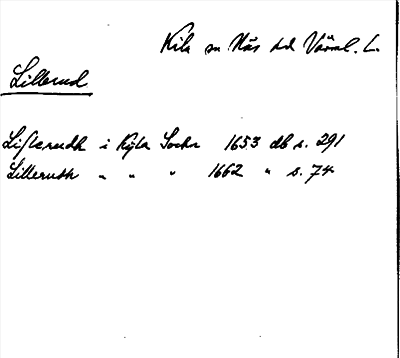 Kila sn Näs hd Värml. L.
Lillerud
Lislerudh i Kyla Sochn 1653 db s. 291
Lillerudh " " " 1662 " s. 74